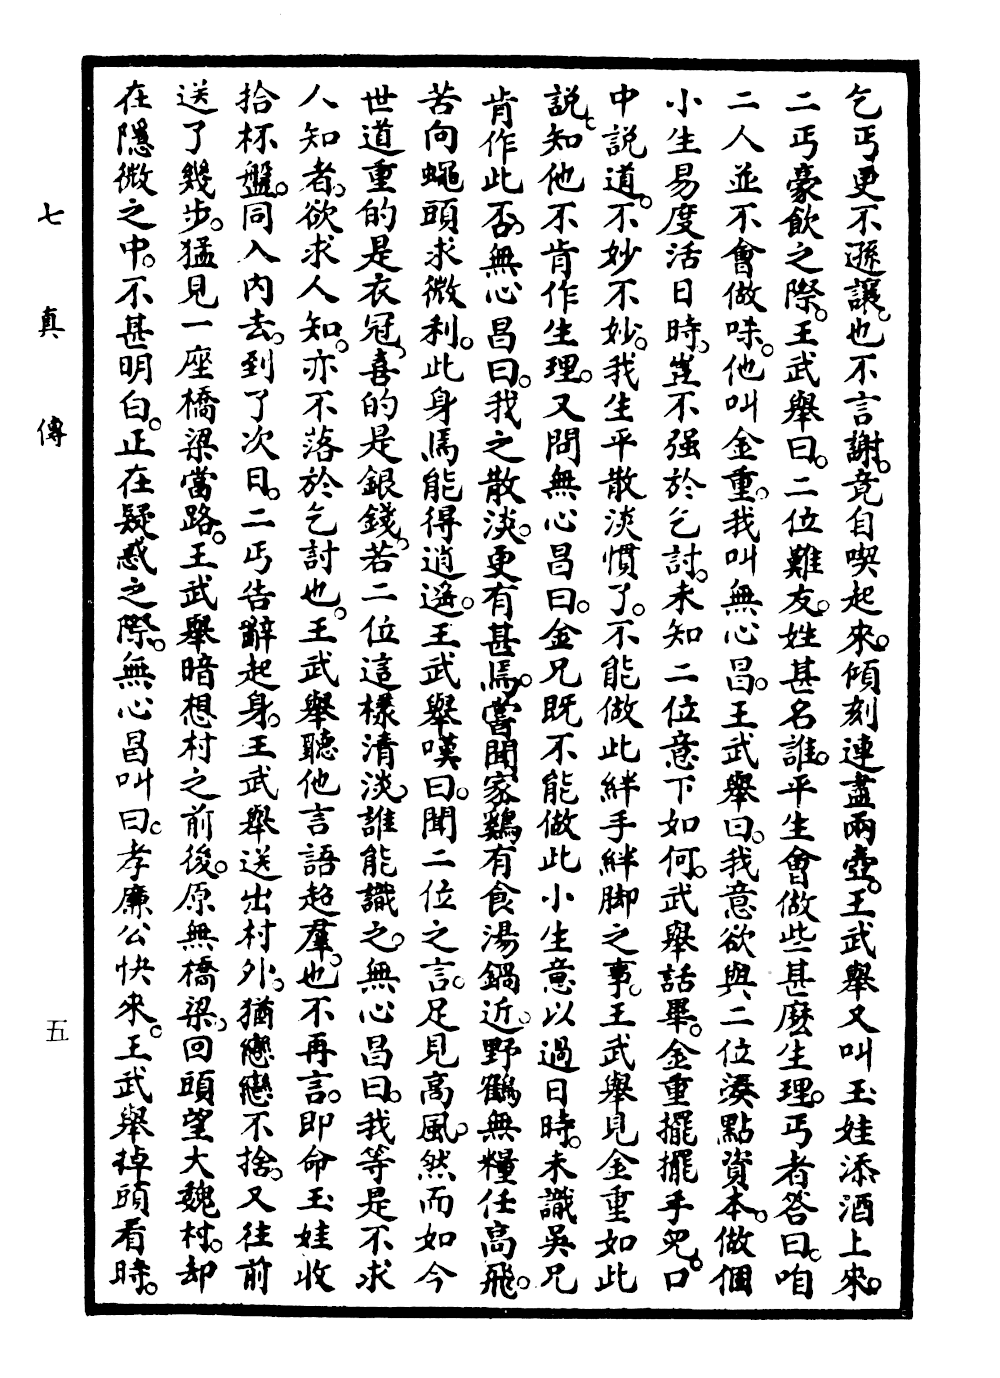 乞丐更不遜讓。也不言謝。竟自喫起來。傾刻連盡兩壺。王武舉又叫玉娃添酒上來。
二丐豪飲之際。王武舉曰。二位難友。姓甚名誰。平生會做些甚麽生理。丐者答曰。咱
二人並不會做啥。他叫金重。我叫無心昌。王武舉曰。我意欲與二位湊點資本。做個
小生易度活日時。豈不强於乞討。未知二位意下如何。武舉話畢。金重擺擺手兒。口
中説道。不妙不妙。我生平散淡慣了。不能做此絆手絆脚之事。王武舉見金重如此
説。知他不肯作生理。又問無心昌曰。金兄既不能做此小生意以過日時。未識吳兄
肯作此否。無心昌曰。我之散淡。更有甚焉。嘗聞家鷄有食湯鍋近。野鶴無糧任高飛。
若向蠅頭求微利。此身焉能得逍遙。王武舉嘆曰。聞二位之言。足見高風。然而如今
世道重的是衣冠。喜的是銀錢。若二位這樣清淡。誰能識之。無心昌曰。我等是不求
人知者。欲求人知。亦不落於乞討也。王武舉聽他言語超羣。也不再言。即命玉娃收
拾杯盤。同入內去。到了次日。二丐告辭起身。王武舉送出村外。猶戀戀不捨。又往前
送了幾步。猛見一座橋梁當路。王武舉暗想村之前後。原無橋梁。回頭望大魏村。却
在隱微之中。不甚明白。正在疑惑之際。無心昌叫曰。孝廉公快來。王武舉掉頭看時。
七真傳
五